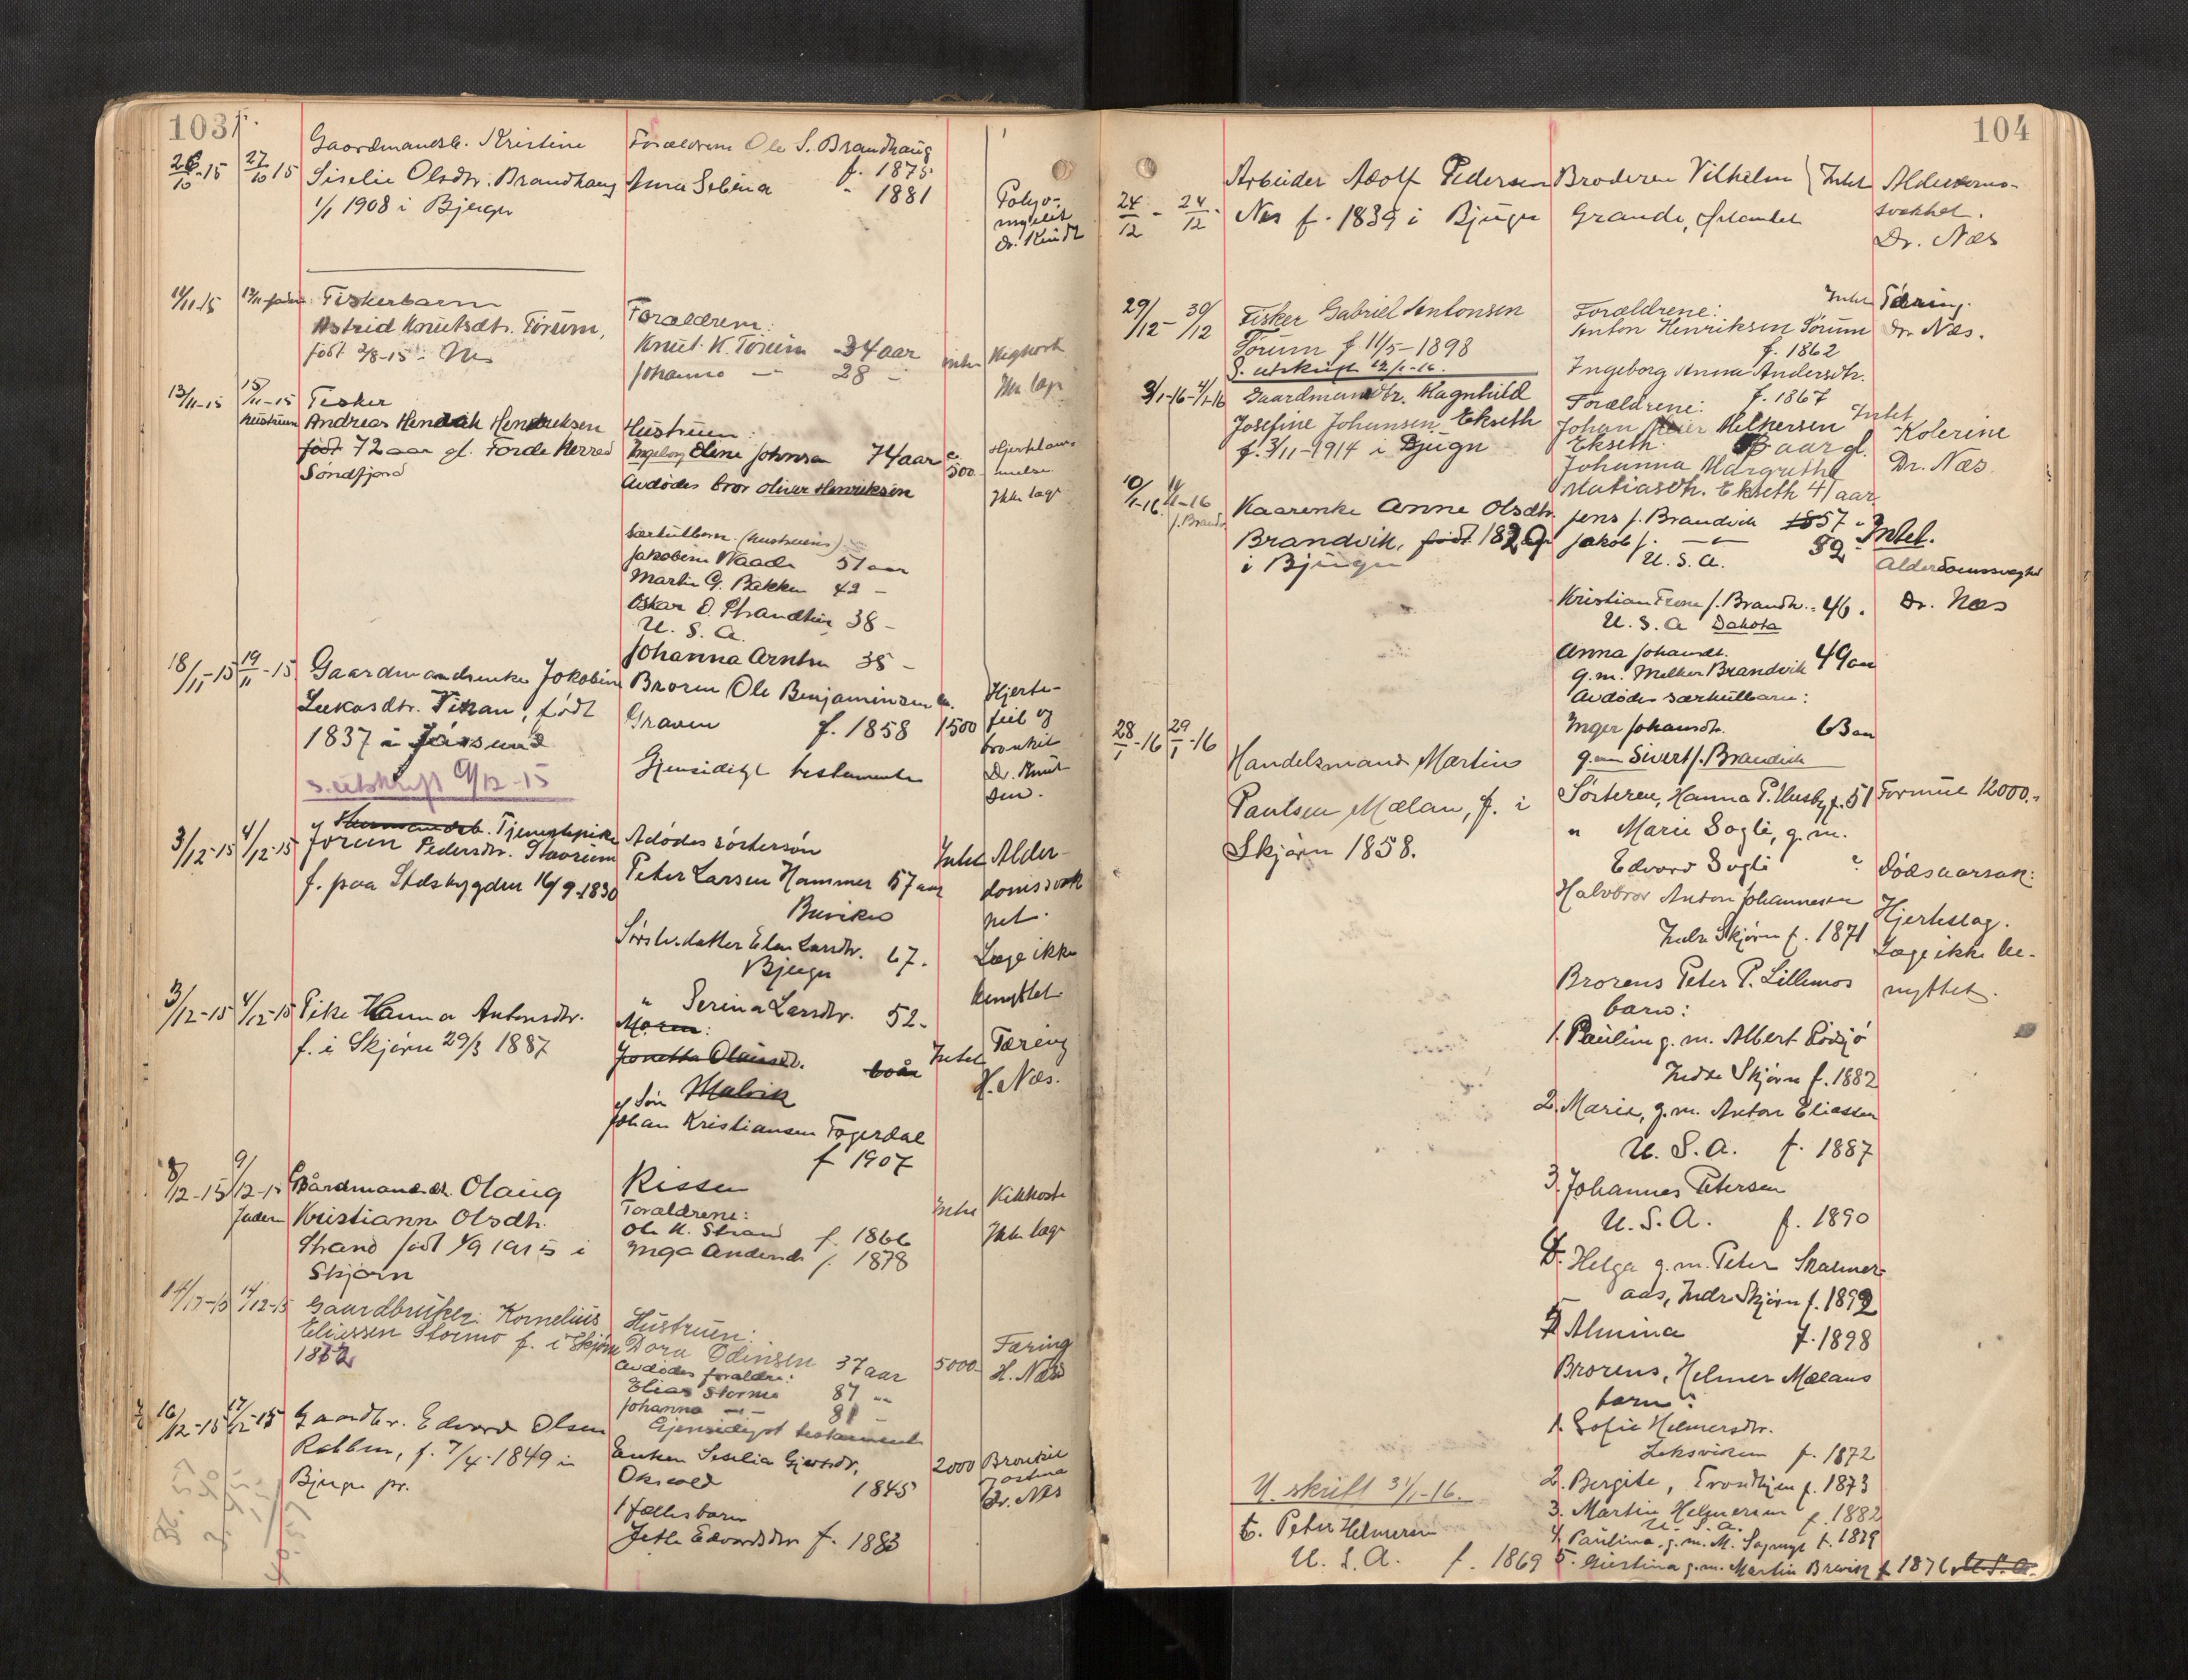 103
Gaardmandsb. Kristine
Siselie Olsdtr. Brandhaug
1/1 1908 i Bjugn
26/10-15 27/10 15
Forældrene Ole S. Brandhaug
f. 1875
Anna Selina " 1881
Polyo-
myelit
Dr. Knudt
11/11-15
Fiskerbarn
Astrid Knutsdtr. Torum,
født 2/8-15
Forældrene:
Knut K. Torum 34 aar
Johanna — 28 —
Intet
Ikke læge
13/11-15 15/11-15
hustruen
Fisker
Andreas Hendrik Hendriksen
født 72 aar gl. Førde Herred
Søndfjord
Hustruen:
Ingeborg Oline Johnsen 74 aar
Avdødes bror Oliver Henriksen
500
Ikke læge
Særkulbarn (hustruens)
Jakobine Waade 51 aar
Martin G. Bakken 42 —
Oskar O. Strandheim 38 —
U. S. A.
Johanna Arntsen 35 —
18/11-15 19/11-15
Gaardmandsenke Jokobine
Lukasdtr. Vikan, født
1837 i Jøssund
s. utskrift 9/12-15
Broren Ole Benjaminsen
Graven f. 1858 1500
Gjensidigt testamente
Hjerte-
feil og
bronkit
Dr. Knut
sen.
3/12-15 4/12-15
Tjenestepike
Jorun Pedersdtr. Staurum
f. paa Stadsbygden 16/9 1830
Adødes søstersøn
Peter Larsen Hammer 57 aar
Buviken
Søst.datter Elen Larsdtr. 67.
Bjugn
" Serina Larsdtr. 52.
Intet
Alder-
domssvak
het.
Læge ikke
benyttet
3/12-15 4/12-15
Pike Hanna Antonsdtr.
f. i Skjørn 29/3 1887
Moren:
Malvik
Søn
Johan Kristiansen Fagerdal
f 1907
Rissen
Intet
Tæring
H. Næs.
8/12-15 9/12-15
faderen
Gårdmandsdt. Olaug
Kristianne Olsdtr.
Strand født 1/9 1915 i
Skjørn
Forældrene:
Ole K. Strand f. 1866
Inga Andersdt f. 1878
Intet
Kikhoste
Ikke læge
14/12-15 14/12-15
Gaardbruker Kornelius
Eliassen Stormo f. i Skjørn
Hustruen:
Dora Odinsen 37 aar
Avdødes forældre:
Elias Stormo 87 "
Johanna — 81 —
Gjensidigt testamente
5000
Tæring
H. Næs
16/12-15 17/12-15
Gaardbr. Edvard Olsen
Rabben, f. 7/4-1849 i
Bjugn pr.
Enken Seselia Gjertsdtr.
Okvold 1845
1 fællesbarn
Jetta Edvardsdtr f. 1883
2000
Bronkit
Dr. Næs
104
24/12 - 24/12
Arbeider Adolf Pedersen
Nes f. 1839 i Bjugn
Broderen Vilhelm
Grande, Ørlandet
Intet
Alderdoms-
svakhet.
Dr. Næs
29/12 - 30/12
Fisker Gabriel Antonsen
Torum f. 11/5-1898
S. utskrift 12/1-16.
Forældrene:
Anton Henriksen Torum
f. 1862
Ingeborg Anna Andersdtr.
f. 1867
Intet
Tæring.
Dr. Næs.
3/1-16 - 4/1-16
Gaardmandsdtr. Magnhild
Josefine Johansen Ekseth
f. 3/11-1914 i Bjugn
Forældrene:
Johan Meier Melkersen
Ekseth. aar gl.
Johanna Margrethe
Matiasdtr. Ekseth 41 aar
Intet
Kolerine
Dr. Næs
10/1-16 11/1-16
Kaarenke Anne Olsdtr.
Brandvik, født 1829
i Bjugn
Jens J. Brandvik 57
Jakob J. — 52
U. S. A.
Kristian J. Brandv. 46.
U. S. A Dakota
Anna Johansdt.
g. m. Melker Brandvik 49 aar
Avdødes særkulbarn:
Inger Johansdtr. 63 aar
g. m. Sivert J. Brandvik
Intet.
Alderdomssvaghet
Dr. Næs
28/1-16 29/1-16
Handelsmand Martin
Paulsen Mælan, f. i
Skjørn 1858.
Søsteren, Hanna P. Husby f. 51
" Marie Sogli, g. m.
Edvard Sogli ?
Halvbror Anton Johannesen
Indre Skjørn f. 1871
Brorens Peter P. Lillemos
barn:
1. Paulin g. m. Albert Rødsjø
Indre Skjørn f. 1882
2. Marie, g. m. Anton Eliassen
U. S. A. f. 1887
3. Johannes Petersen
U. S. A. f. 1890
4. Helga g. m. Peter Skaumer-
aas, Indre Skjørn f. 1892
5 Almina f. 1898
Brorens, Helmer Mælans
barn:
1. Sofie Helmersdtr.
Leksviken f. 1872
2. Bergite, Trondhjem f. 1873
3. Martin Helmersen f. 1882
U. S. A.
4. Paulina, g. m. M. f. 1879
5. Giertina g. m. Martin Brevik f 1876 U. S. A.
Formue 12000.-
Dødsaarsak:
Hjerteslag.
Læge ikke be-
nyttet.
U. skrift 31/1-16.
6. Peter Helmersen
U. S. A. f. 1869